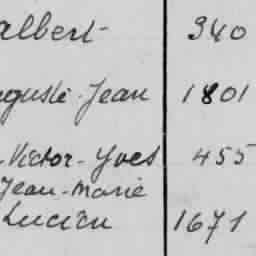 albert 340
guste-Jean 1801
-Victor-Yves 455
Jean-Marie
Lucien 1671